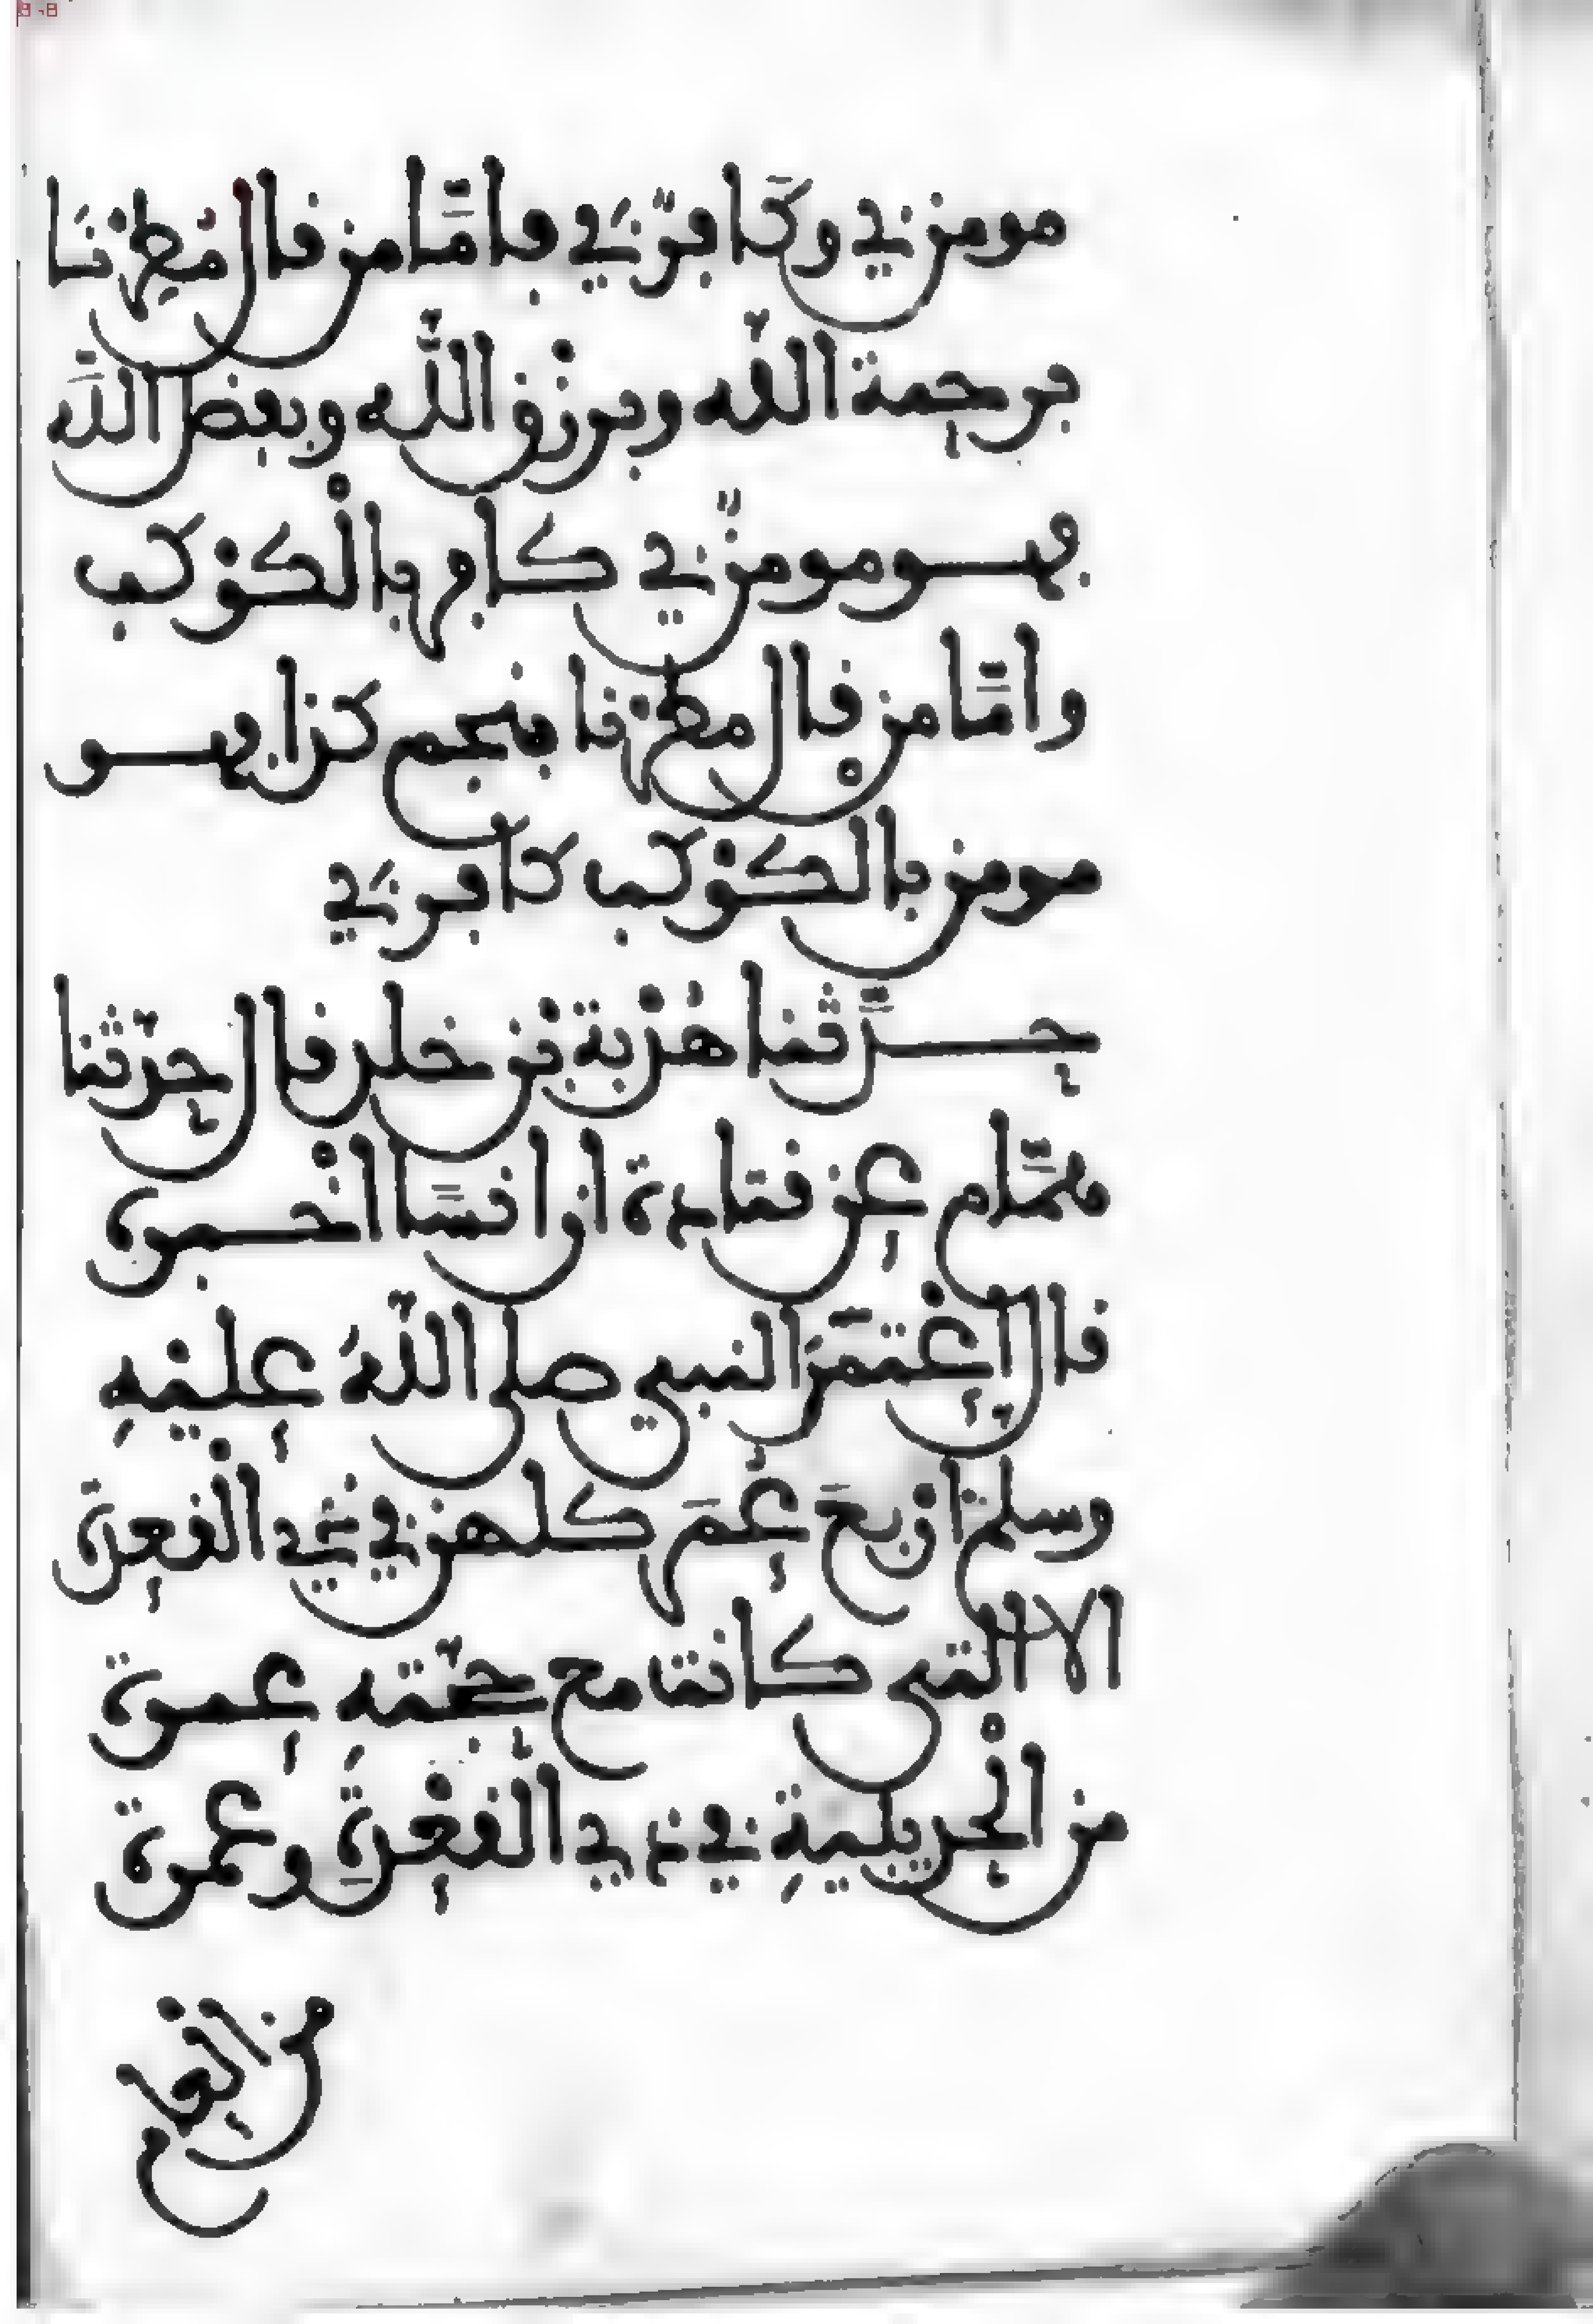 مومن بي وكافر بي فامّا من قال مُطِرْنَا
برحمة الله وبرزق الله وبفضل الله
فهو مومن بي كافر بالْكوْكب
وامّا من قال مطرْنا بنجم كذا فهو
مومن بالكوْكب كافر بي
حدّثنا هُدْبة بْن خلد قال حدثنا
همّام عن قتادة ان انسًا اخْبره
قال اعْتمَرَ النبي صلى اللهُ عليْهِ
وسلم ارْبعَ عُمَر كلهن في ذي الْقعدة
الا التي كانت مع حجته عمرة
من الْحديبيةِ في ذي الْقعْدةِ وعمرة
من الْعام